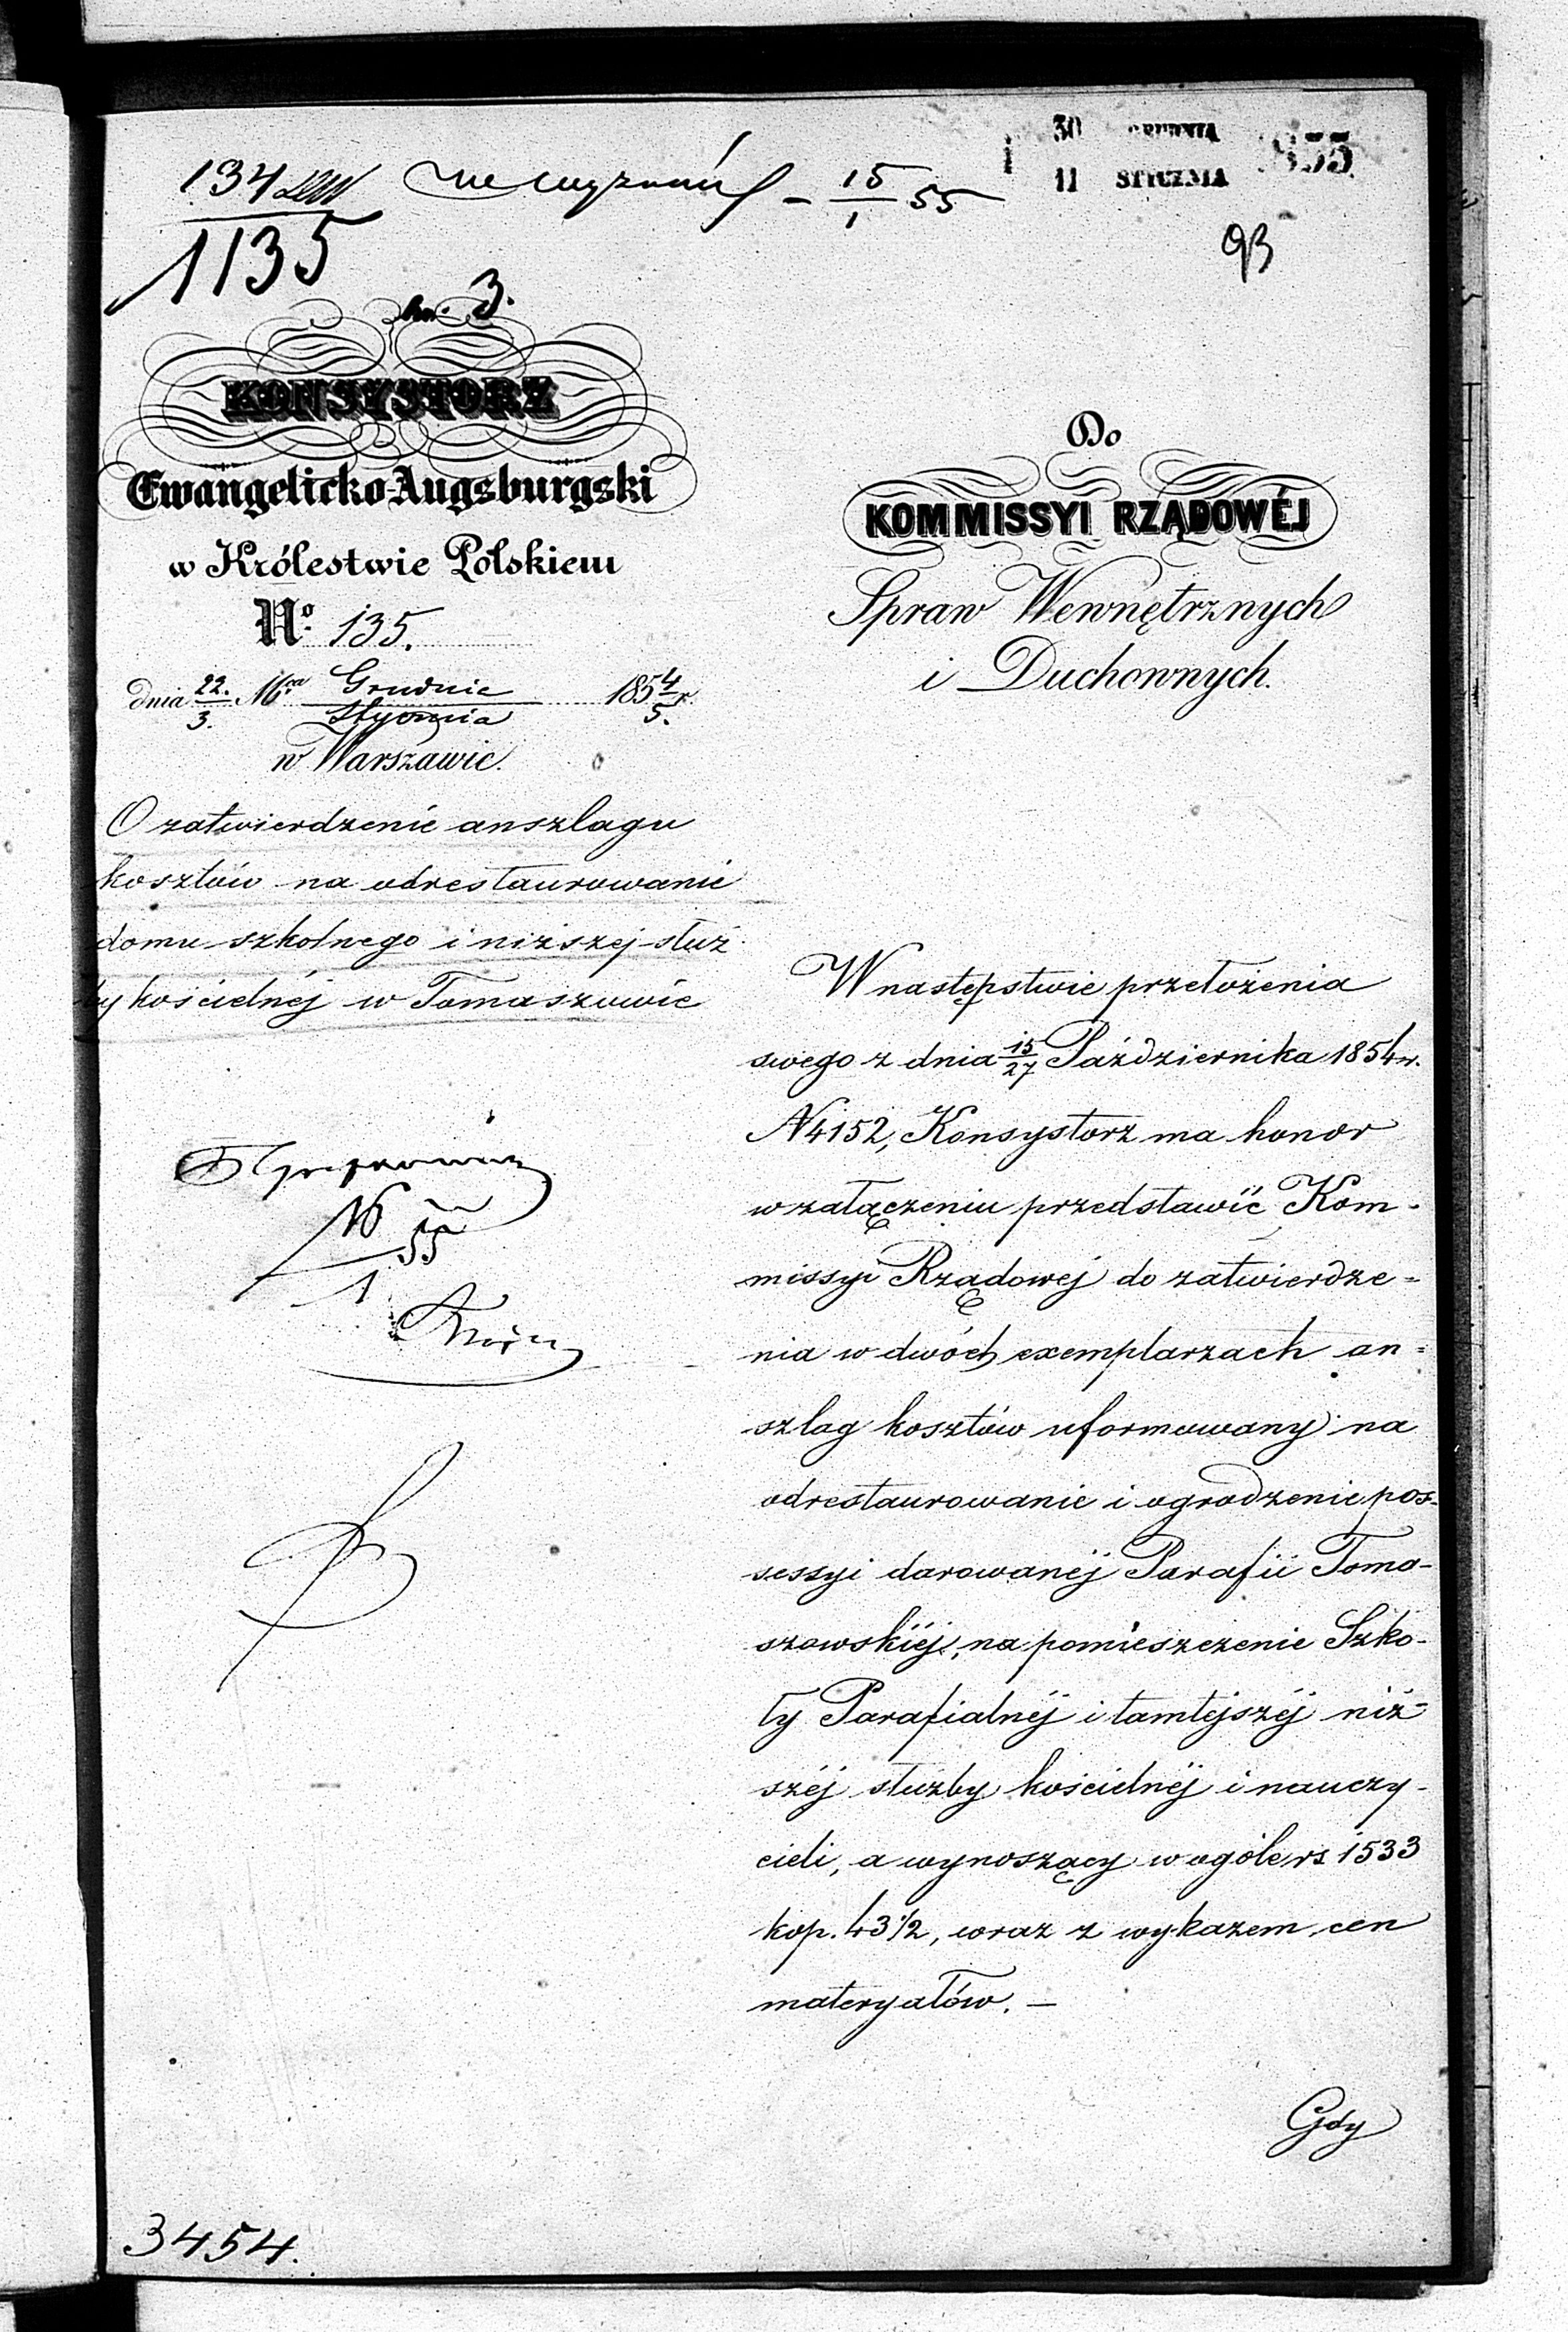 30 GRUDNIA
11 STYCZNIA 1855
134
1135
15/1 55
93
3.
KONSYSTORZ
Ewangelicko-Augsburgski
w Królestwie Polskiem
No. 135.
dnia 22./3. Mca Grudnia/Stycznia 1854/5. r.
w Warszawie.
O zatwierdzenie anszlagu
kosztów na odrestaurowanie
domu szkolnego i niższej służ
by kościelnéj w Tomaszowie
16/1 55
Do
KOMMISSYI RZĄDOWÉJ
Spraw Wewnętrznych
i Duchownych.
W następstwie przełożenia
swego z dnia 15/27 Października 1854 r.
N 4152, Konsystorz ma honor
w załączeniu przedstawić Kom-
missyi Rządowej do zatwierdze=
nia w dwóch exemplarzach an=
szlag kosztów uformowany na
odrestaurowanie i ogrodzenie pos-
sessyi darowanéj Parafii Toma-
szowskiéj, na pomieszczenie Szko-
ły Parafialnéj i tamtejszéj niż=
széj służby kościelnéj i nauczy-
cieli, a wynoszący w ogóle rs 1533
kop. 43 1/2, wraz z wykazem cen
materyałów. —
Gdy
3454.